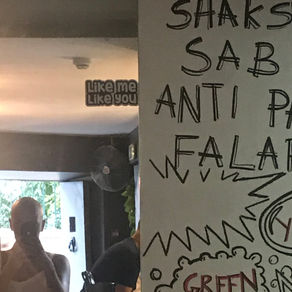 Like me
Like you
SHAKS
SAB
ANTI PA
FALAF
GREEN